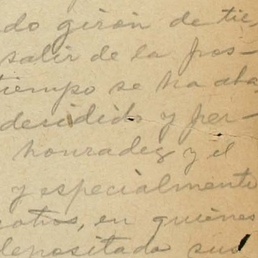 do girón de tie
salir de la pos-
tiempo se ha aba
decidido y per-
honradez y el
y especialmente
otios, en quiénes
depositado sus